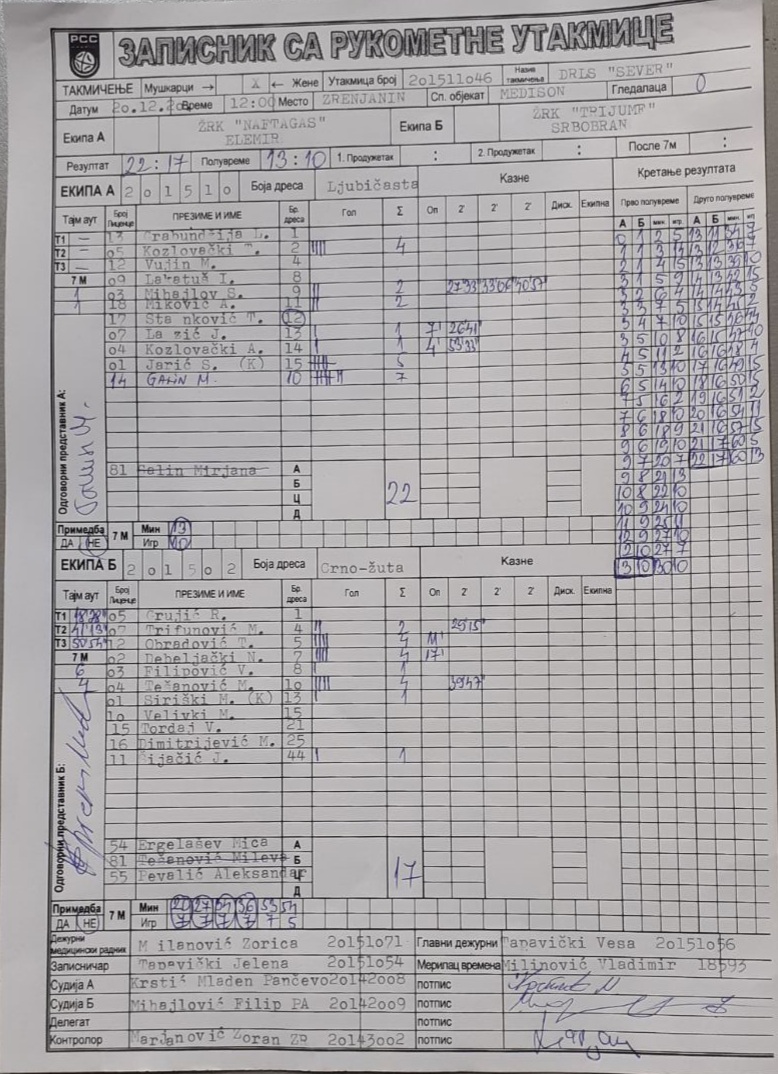 РСС
ЗАПИСНИК СА РУКОМЕТНЕ УТАКМИЦЕ
ТАКМИЧЕЊЕ Мушкарци → X ← Жене Утакмица број 201511046 Назив такмичења DRLS "SEVER"
Датум 20.12. Време 12:00 Место ZRENJANIN Сп. објекат MEDISON Гледалаца 0
Екипа А ŽRK "NAFTAGAS" ELEMIR Екипа Б ŽRK "TRIJUMF" SRBOBRAN
Резултат 22:17 Полувреме 13:10 1. Продужетак : 2. Продужетак : После 7м :
ЕКИПА А 2 0 1 5 1 0 Боја дреса Ljubičasta Казне Кретање резултата
Тајм аут Број Лиценце ПРЕЗИМЕ И ИМЕ Бр. дреса Гол Σ Оп 2' 2' 2' Диск. Екипна Прво полувреме Друго полувреме
А Б мин. игр. А Б мин. игр.
T1 — 13 Grabundžija L. 1
T2 — 05 Kozlovački T. 2 IIII 4
T3 — 12 Vujin M. 4
7 М 09 Lakatuš I. 8
1 03 Mihajlov S. 9 II 2 27'33 33'06 40'57
1 18 Miković A. 11 II 2
17 Sta nković T. 12
07 La zić J. 13 I 1 7' 26'41
04 Kozlovački A. 14 I 1 4' 53'33
01 Jarić S. (K) 15 5
14 GALIN M. 10 7
Одговорни представник А:
81 Galin Mirjana А
Б
Ц 22
Д
0 1 2 5
1 1 3 14
2 1 4 15
3 1 5 9
3 2 6 4
3 3 7 5
3 4 7 10
3 5 10 8
4 5 11 2
5 5 13 10
6 5 14 10
7 5 16 2
7 6 18 10
8 6 18 9
9 6 19 10
9 7 20 7
9 8 21 13
10 8 22 10
10 9 24 10
11 9 25 11
12 9 27 10
12 10 27 7
13 10 30 10
13 11 34 7
13 12 36 7
13 13 39 10
14 13 42 15
14 14 43 5
15 14 45 2
15 15 46 4
16 15 47 10
16 16 48 4
17 16 49 15
18 16 50 15
19 16 51 2
20 16 54 11
21 16 57 15
21 17 60 5
22 17 60 13
Примедба ДА НЕ 7 М Мин 13
Игр 10
ЕКИПА Б 2 0 1 5 0 2 Боја дреса Crno-žuta Казне
Тајм аут Број Лиценце ПРЕЗИМЕ И ИМЕ Бр. дреса Гол Σ Оп 2' 2' 2' Диск. Екипна
T1 18'28" 05 Grujić R. 1
T2 41'13" 07 Trifunović M. 4 II 2 25'15"
T3 50'54" 12 Obradović T. 5 IIII 4 11'
7 М 02 Debeljački N. 7 IIII 4 17'
6 03 Filipović V. 8 I 1
4 04 Težanović M. 10 IIII 4 39'47"
01 Siriški M. (K) 13 I 1
10 Velivki M. 15
15 Tordaj V. 21
16 Dimitrijević M. 25
11 Šijačić J. 44 I 1
Одговорни представник Б:
54 Ergelašev Mica А
81 Težanović Mileva Б
55 Pevalić Aleksandar Ц 17
Д
Примедба ДА НЕ 7 М Мин 20 27 34 36 53 54
Игр 7 7 7 7 7 5
Дежурни медицински радник Milanović Zorica 20151071 Главни дежурни Tapavički Vesa 20151056
Записничар Tapavički Jelena 20151054 Мерилац времена Milinović Vladimir 18593
Судија А Krstić Mladen Pančevo 20142008 потпис
Судија Б Mihajlović Filip PA 20142009 потпис
Делегат потпис
Контролор Marjanović Zoran ZR 20143002 потпис